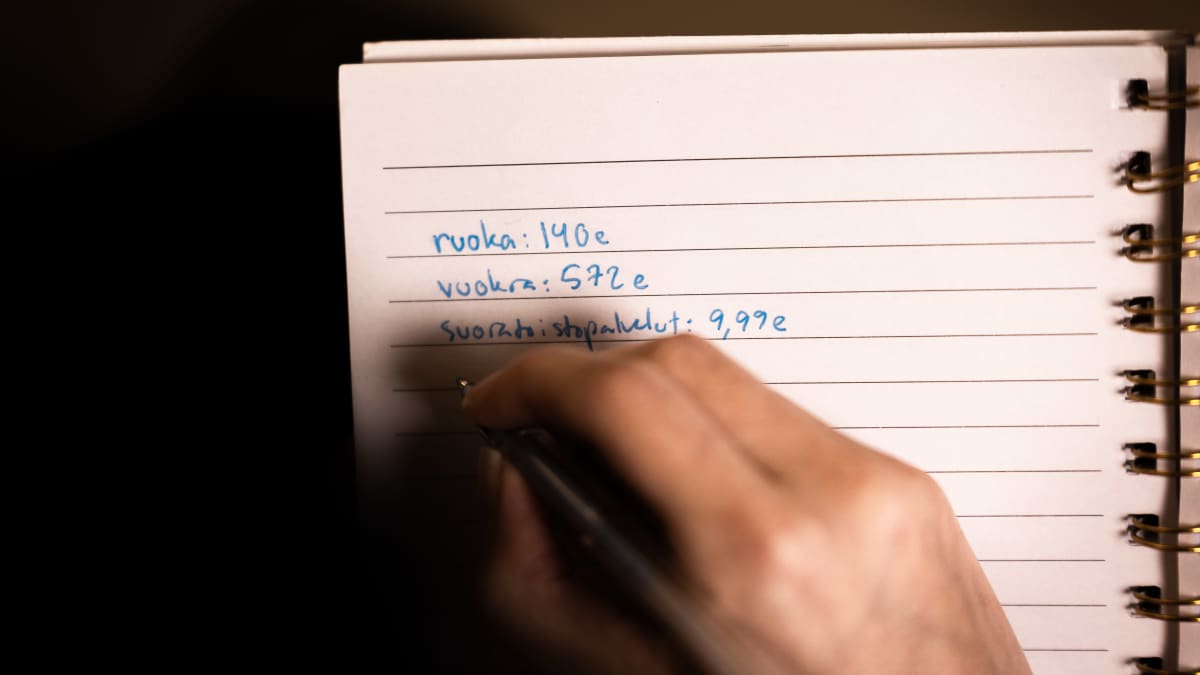 ruoka: 140e
vuokra: 572 e
suoratoistopalvelut: 9,99e